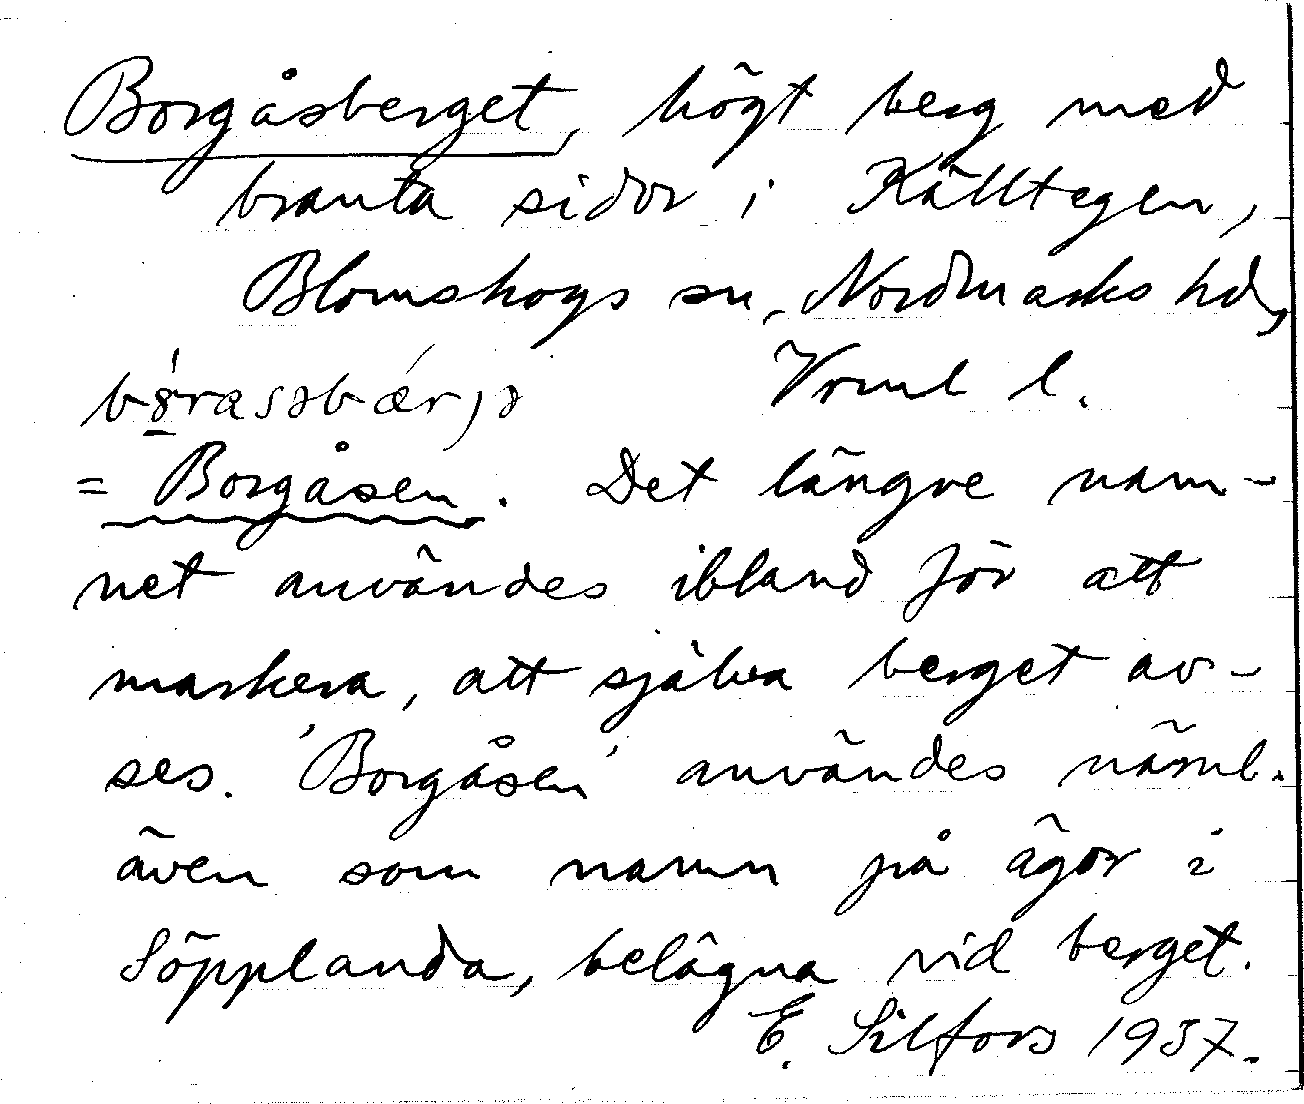 Borgåsberget, högt berg med
branta sidor i Källtegen,
Blomskogs sn, Nordmarks hd,
Vrml l.
= Borgåsen. Det längre nam-
net användes ibland för att
markera, att själva berget av-
ses. 'Borgåsen' användes näml.
även som namn på ägor i
Söpplanda, belägna vid berget.
E. Silfors 1937.